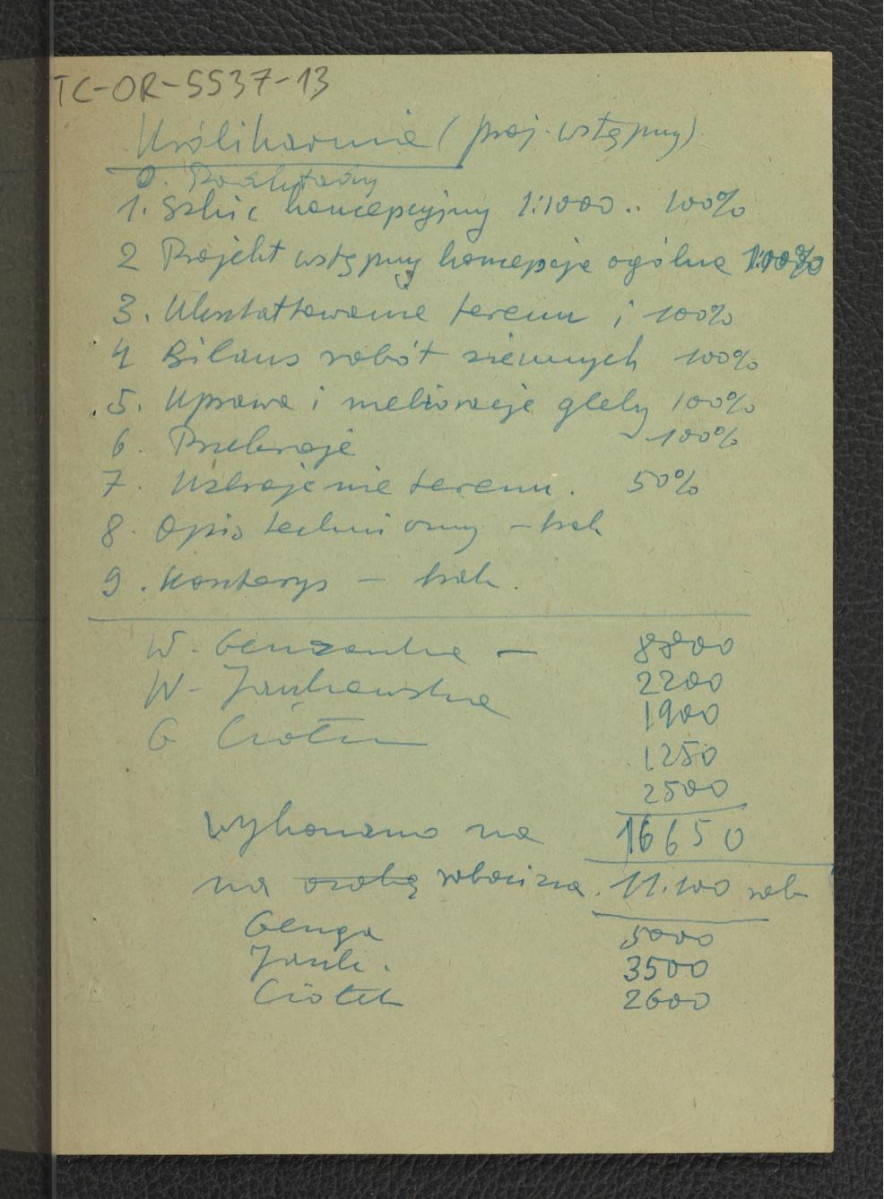 TC-OR-5537-13
Królikarnia (proj. wstępny)
0. Podkłady
1. Szkic koncepcyjny 1:1000 .. 100%
2 Projekt wstępny koncepcja ogólna 100%
3. Ukształtowanie terenu i 100%
4 Bilans robót ziemnych 100%
5. Uprawa i melioracje gleby 100%
6. Przekroje 100%
7. Uzbrojenie terenu. 50%
8. Opis techniczny - brak
9. Kosztorys - brak.
W. Genzanka - 8800
W. Jankowska 2200
1900
G Ciołek
1250
2500
wykonano na 16650
na osobę robocizna. 11.100 rob
Genga 5000
Jank. 3500
Ciołek 2600